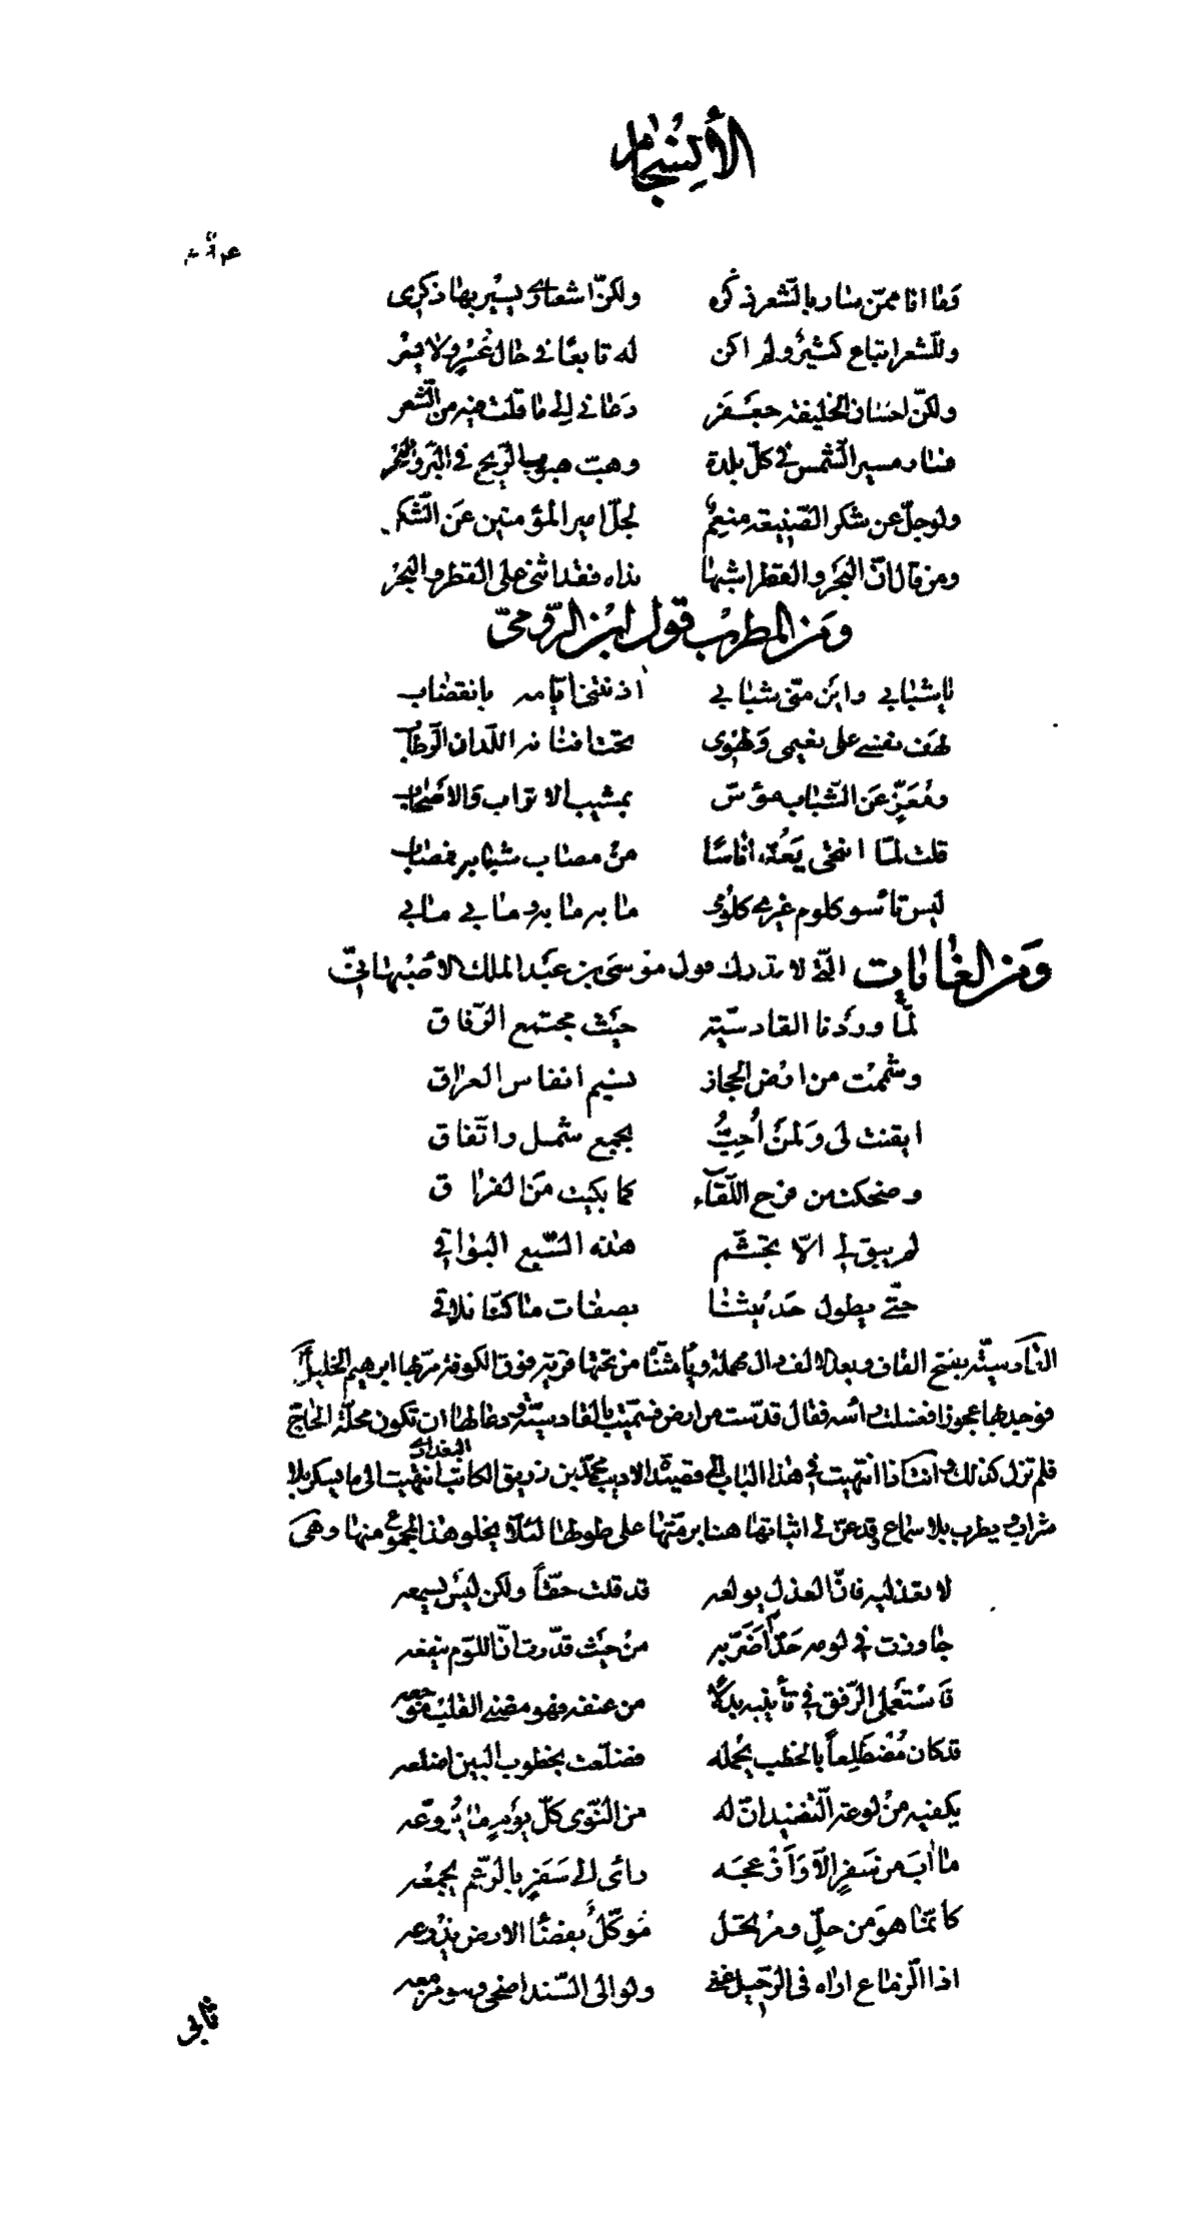 الأنسجام
وما انا ممّن سار بالشّعر ذكره ولكنّ اشعاري يسير بها ذكرى
وللشّعر اتباع كثير ولم اكن له تابعًا في حال عسر ولا يسر
ولكنّ احسان الخليفة جعفر دعاني الى ما قلت فيه من الشّعر
فسار مسير الشّمس في كلّ بلدة وهبّ هبوب الرّيح في البرّ والبحر
ولو جلّ عن شكر الصّنيعة منعم لجلّ امير المؤمنين عن الشّكر
ومن قال انّ البحر والقطر اشبها نداه فقد اثنى على القطر والبحر
ومن المطرب قول ابن الرّوميّ
يا شبابي واين منّى شبابي اذنتنى ايّامه بانقضاب
لهف نفسي على نعيمى ولهوى تحت افنانه اللّدان الرّطاب
ومُعَزٍّ عن الشّباب مؤسّ بمشيب الاتراب والاصحاب
قلت لمّا انتحى يعدّ اناسًا من مصاب شبابه فمصاب
ليس تأسو كلوم غيرى كلومى ما به ما به وما بي ما بي
ومن الغايات الّتي لا تدرك قول موسى بن عبد الملك الاصبهانيّ
لمّا وردنا القادسيّة حيث مجتمع الرّفاق
وشممت من ارض الحجاز نسيم انفاس العراق
ايقنت لى ولمن أُحِبُّ بجمع شمل واتّفاق
وضحكت من فرح اللّقآء كما بكيت من الفراق
لم يبق لي الاّ تجشّم هذه السّبع البواقي
حتّى يطول حديثنا بصفات ما كنّا نلاقي
القادسيّة بفتح القاف وبعد الالف دال مهملة ويا مثنّاة من تحتها قرية فوق الكوفة مرّ بها ابرهيم الخليل
فوجد بها عجوزا فغسلت رأسه فقال قدّست من ارض فسمّيت بالقادسيّة ودعا لها ان تكون محلّة الحاجّ
فلم تزل كذلك وانشاذا انتهيت في هذا الباب الى قصيدة الاديب محمّد بن زريق الكاتب البغدادي انتهيت الى ما يسكر بلا
شراب ويطرب بلا سماع وقد عنّ لي اثباتها هنا برمّتها على طولها لئلّا يخلو هذا المجموع منها وهى
لا تعذليه فانّ العذل يولعه قد قلت حقّاً ولكن ليس يسمعه
جاوزت في لومه حدّا اضرّ به من حيث قدّرت انّ اللّوم ينفعه
فاستعملى الرّفق في تأنيبه بدلاً من عنفه فهو مضنى القلب موجعه
قد كان مُضْطَلِعاً بالخطب يحمله فضلّعت بخطوب البين اضلعه
يكفيه من لوعة التّفنيد انّ له من النّوى كلّ يوم ما يروّعه
ما اٰبَ من سَفَرٍ الاّ وازعجه رأى الى سَفَرٍ بالرّغم يجمعه
كانّما هو من حلّ ومرتحل موكّلُ بفضأ الارض يذرعه
اذا الزّماع اراه في الرّحيل غنى ولو الى السّند اضحى وهو مزمعه